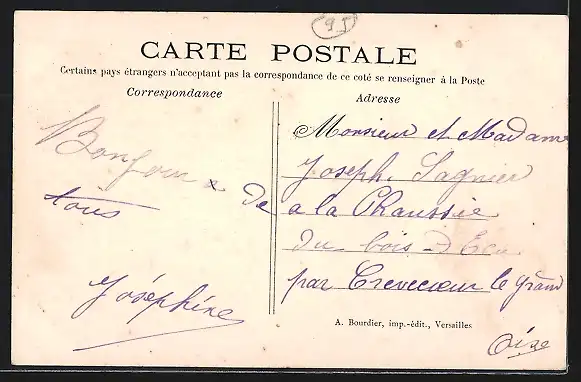 95
CARTE POSTALE
Certains pays étrangers n'acceptant pas la correspondance de ce coté se renseigner à la Poste
Correspondance
Adresse
Bonjour a
tous
Joséphine
Monsieur et Madame
Joseph Lagnier
De a la Chaussie
du bois D Ecu
par Crevecœur le Grand
Oise
A. Bourdier, imp.-édit., Versailles